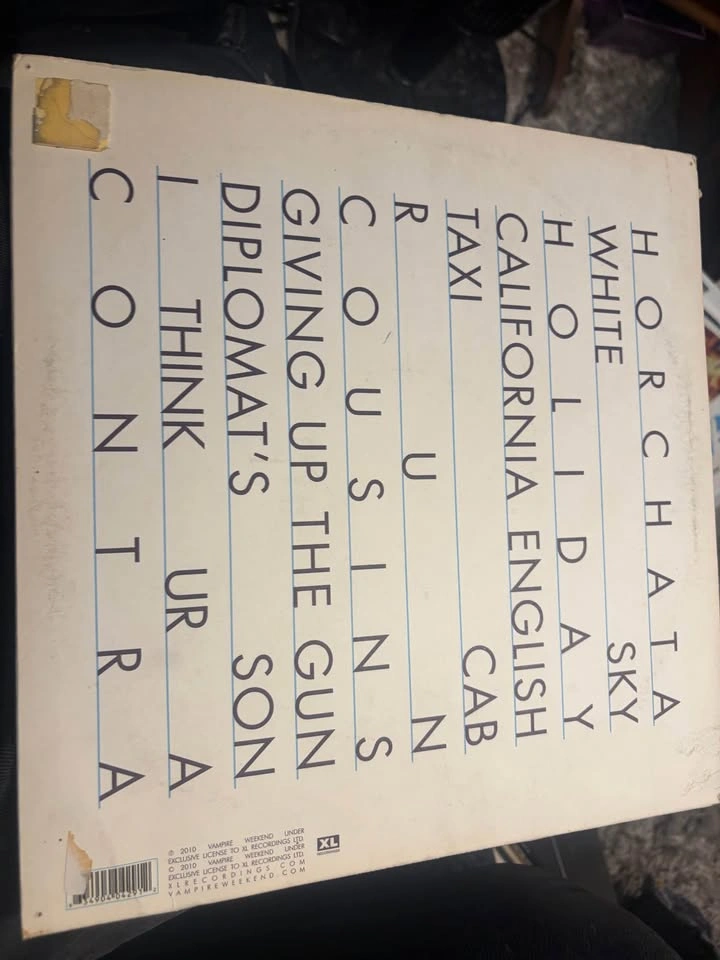 HORCHATA
WHITE SKY
HOLIDAY
CALIFORNIA ENGLISH
TAXI CAB
RUN
COUSINS
GIVING UP THE GUN
DIPLOMAT'S SON
I THINK UR A
CONTRA
XL
RECORDINGS
℗ 2010 VAMPIRE WEEKEND UNDER
EXCLUSIVE LICENSE TO XL RECORDINGS LTD.
© 2010 VAMPIRE WEEKEND UNDER
EXCLUSIVE LICENSE TO XL RECORDINGS LTD.
XLRECORDINGS.COM
VAMPIREWEEKEND.COM